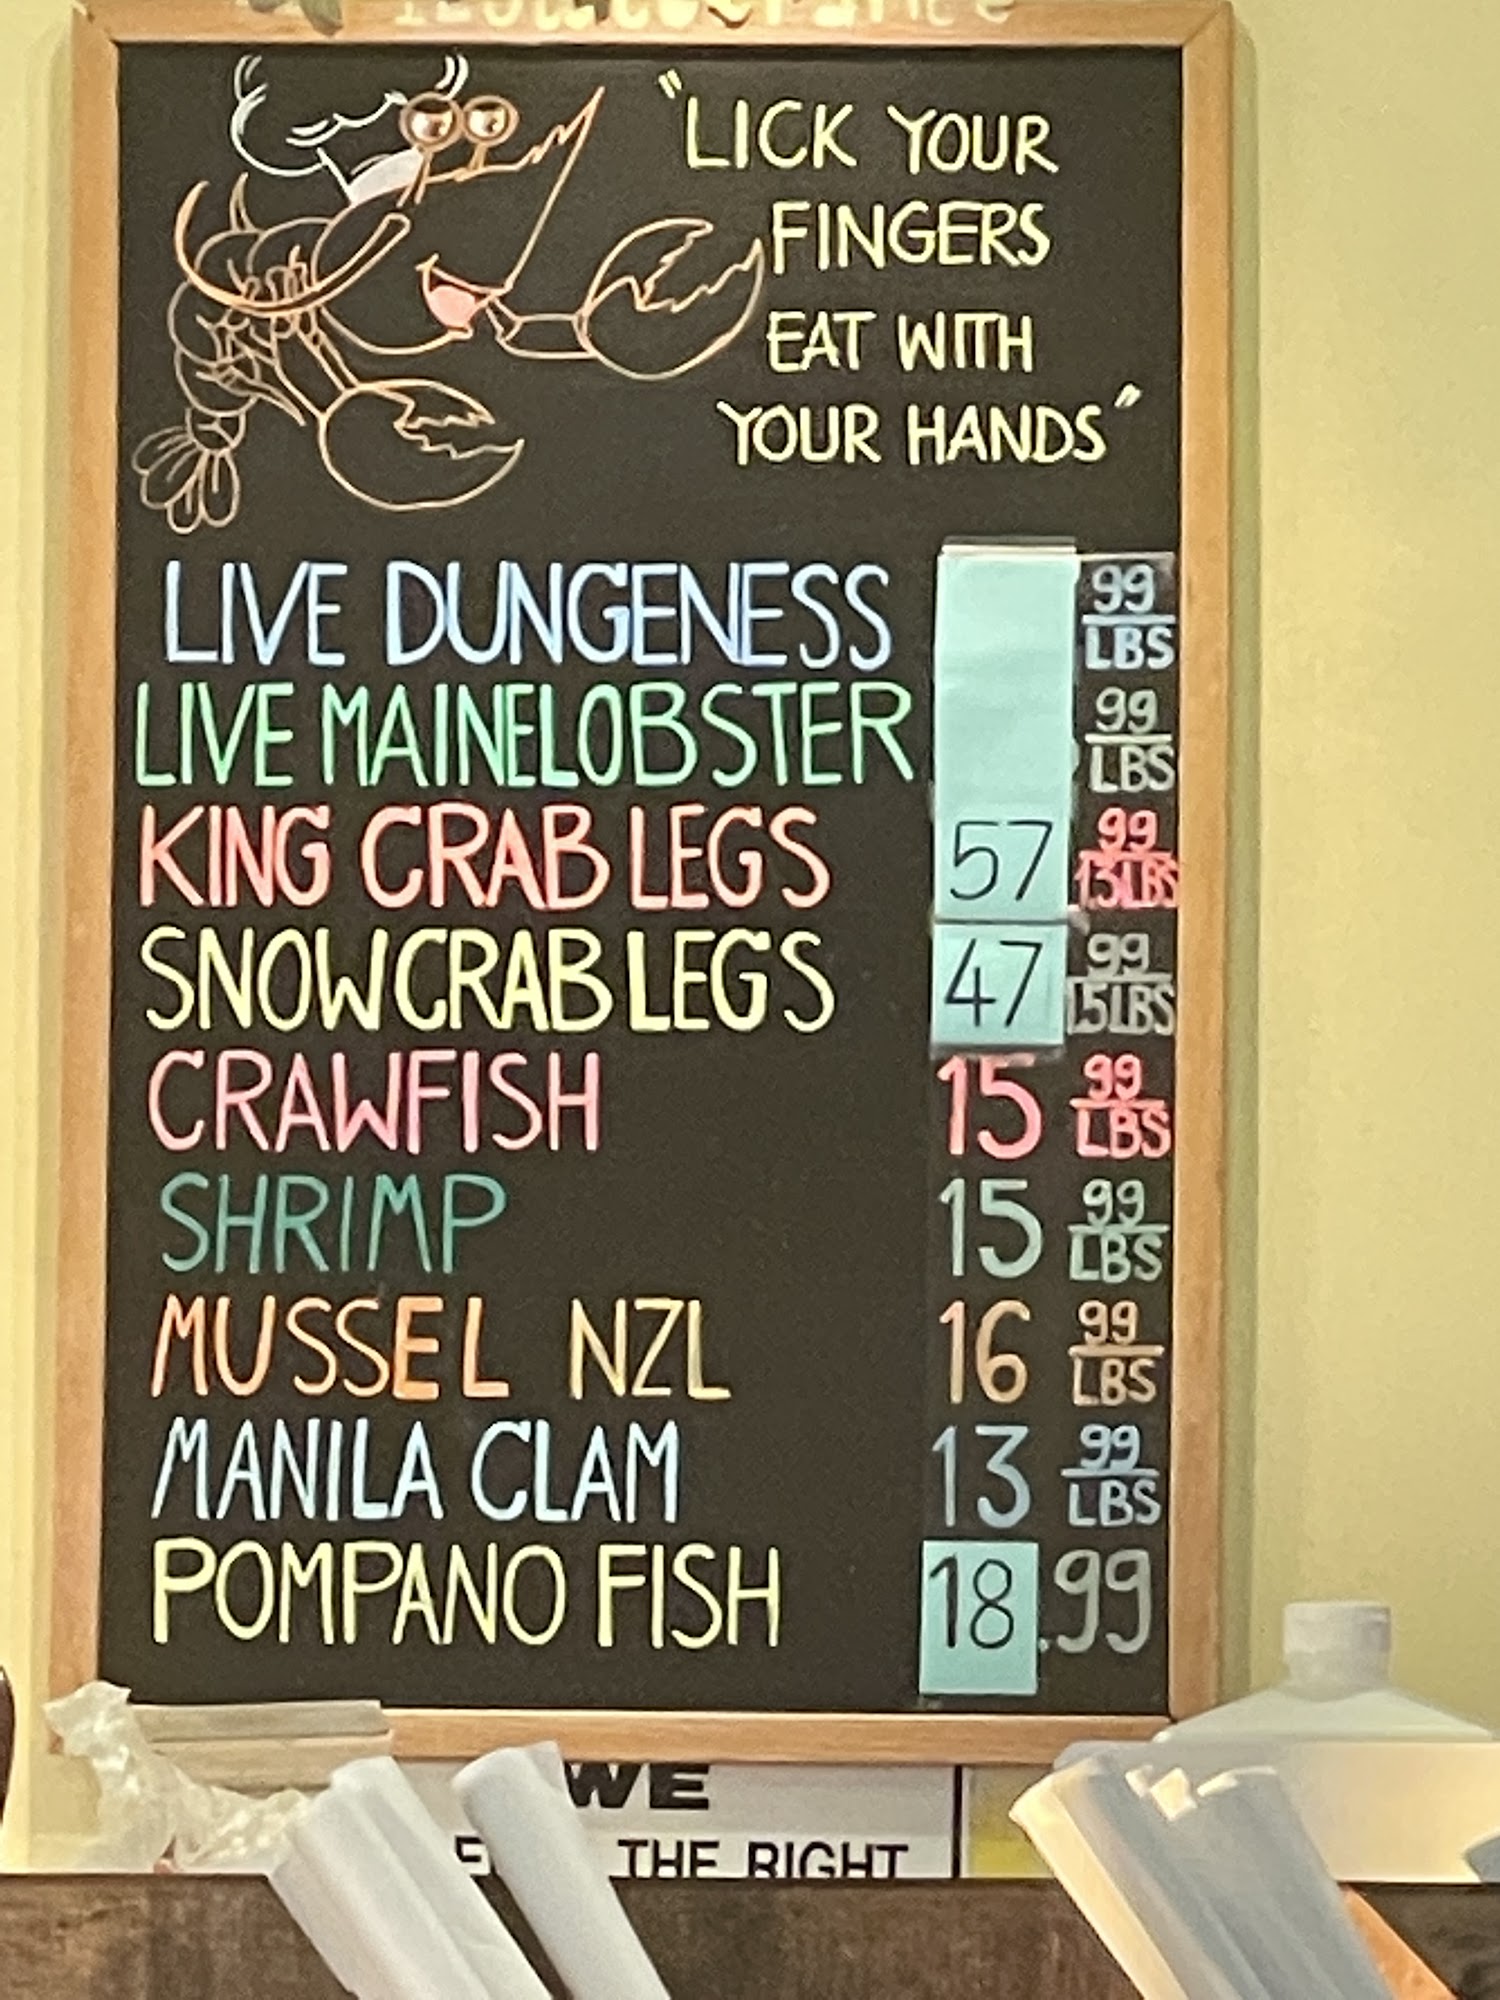 "LICK YOUR
FINGERS
EAT WITH
YOUR HANDS"
LIVE DUNGENESS 99/LBS
LIVE MAINE LOBSTER 99/LBS
KING CRAB LEGS 57 99/1.3LBS
SNOW CRAB LEGS 47 99/1.5LBS
CRAWFISH 15 99/LBS
SHRIMP 15 99/LBS
MUSSEL NZL 16 99/LBS
MANILA CLAM 13 99/LBS
POMPANO FISH 18.99
WE
THE RIGHT